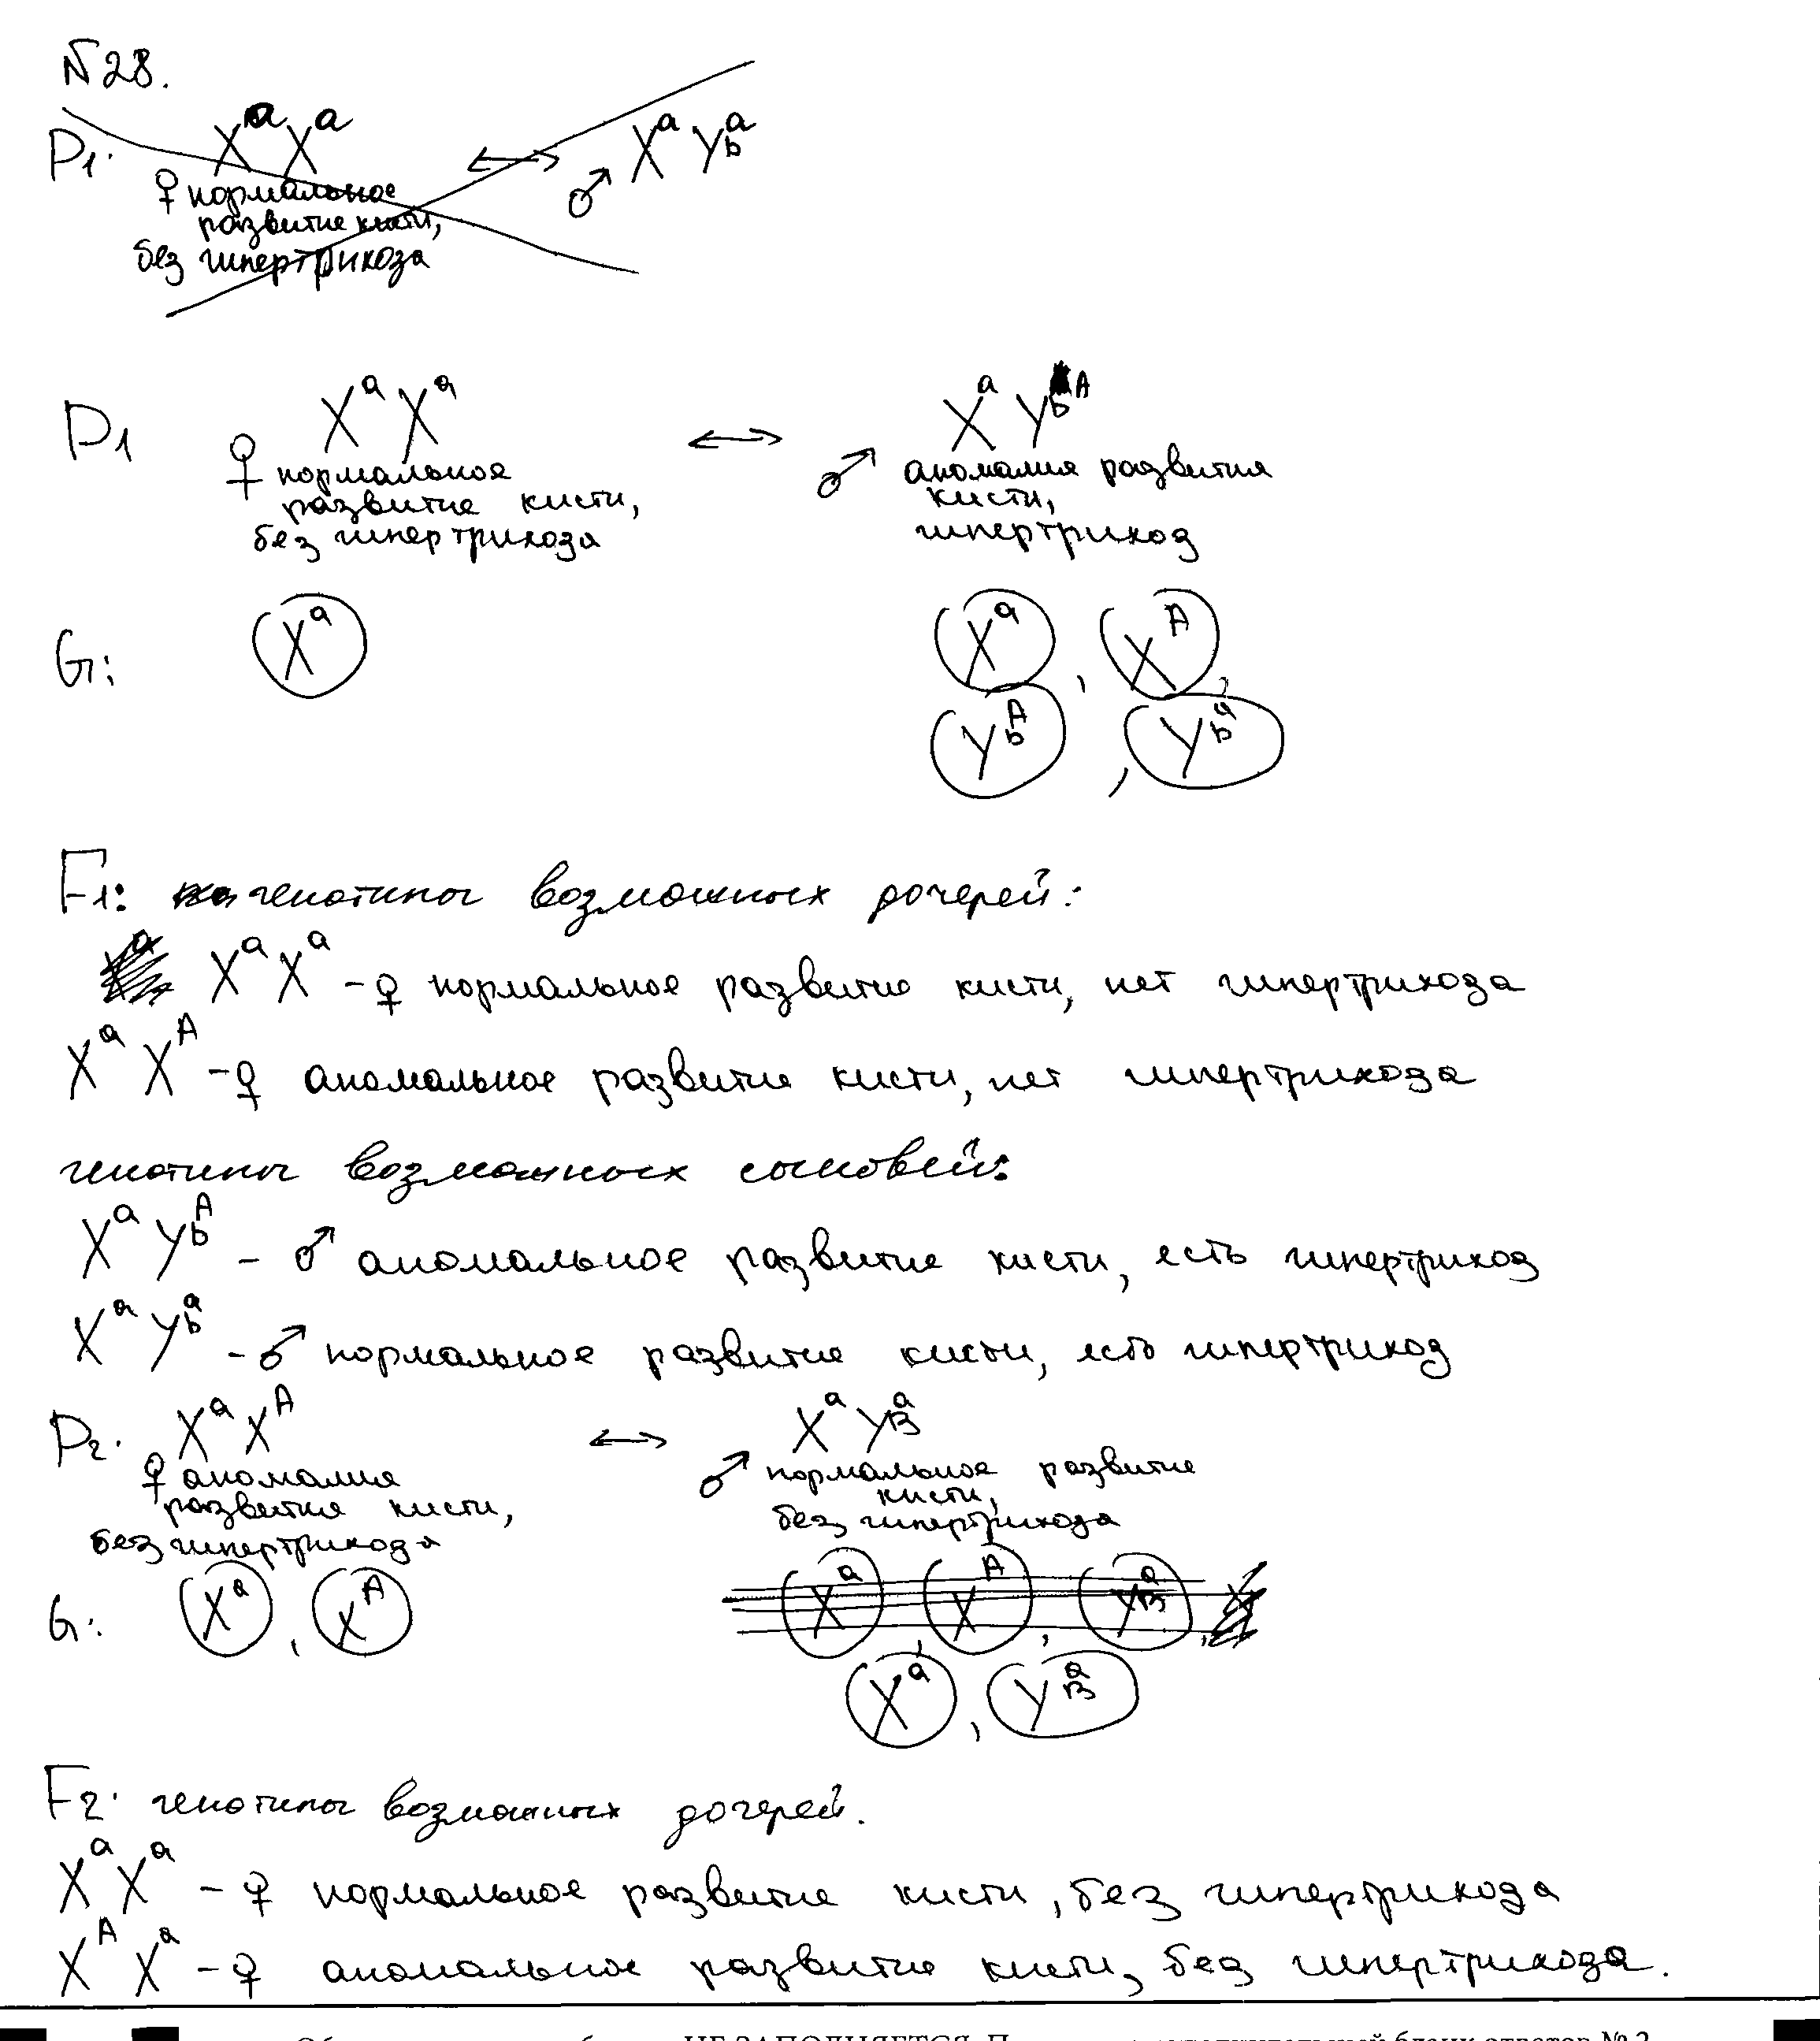 №28.
P1. XᵃXᵃ ↔ ♂ XᵃYbᵃ
♀ нормальное
развитие кисти,
без гипертрихоза
P1 ♀ XᵃXᵃ ↔ ♂ XᵃYbᴬ
нормальное развитие кисти, без гипертрихоза
аномалия развития кисти, гипертрихоз
G: Xᵃ Xᵃ, Xᴬ,
Ybᴬ, Ybᵃ
F1: генотипы возможных дочерей:
XᵃXᵃ - ♀ нормальное развитие кисти, нет гипертрихоза
XᵃXᴬ - ♀ аномальное развитие кисти, нет гипертрихоза
генотипы возможных сыновей:
XᵃYbᴬ - ♂ аномальное развитие кисти, есть гипертрихоз
XᵃYbᵃ - ♂ нормальное развитие кисти, есть гипертрихоз
P2. XᵃXᴬ ↔ XᵃYBᵃ
♀ аномалия развития кисти, без гипертрихоза
♂ нормальное развитие кисти, без гипертрихоза
G: Xᵃ, Xᴬ Xᵃ, Xᴬ, YBᵃ,
Xᵃ, YBᵃ
F2. генотипы возможных дочерей.
XᵃXᵃ - ♀ нормальное развитие кисти, без гипертрихоза
XᴬXᵃ - ♀ аномальное развитие кисти, без гипертрихоза.
НЕ ЗАПОЛНЯЕТСЯ.